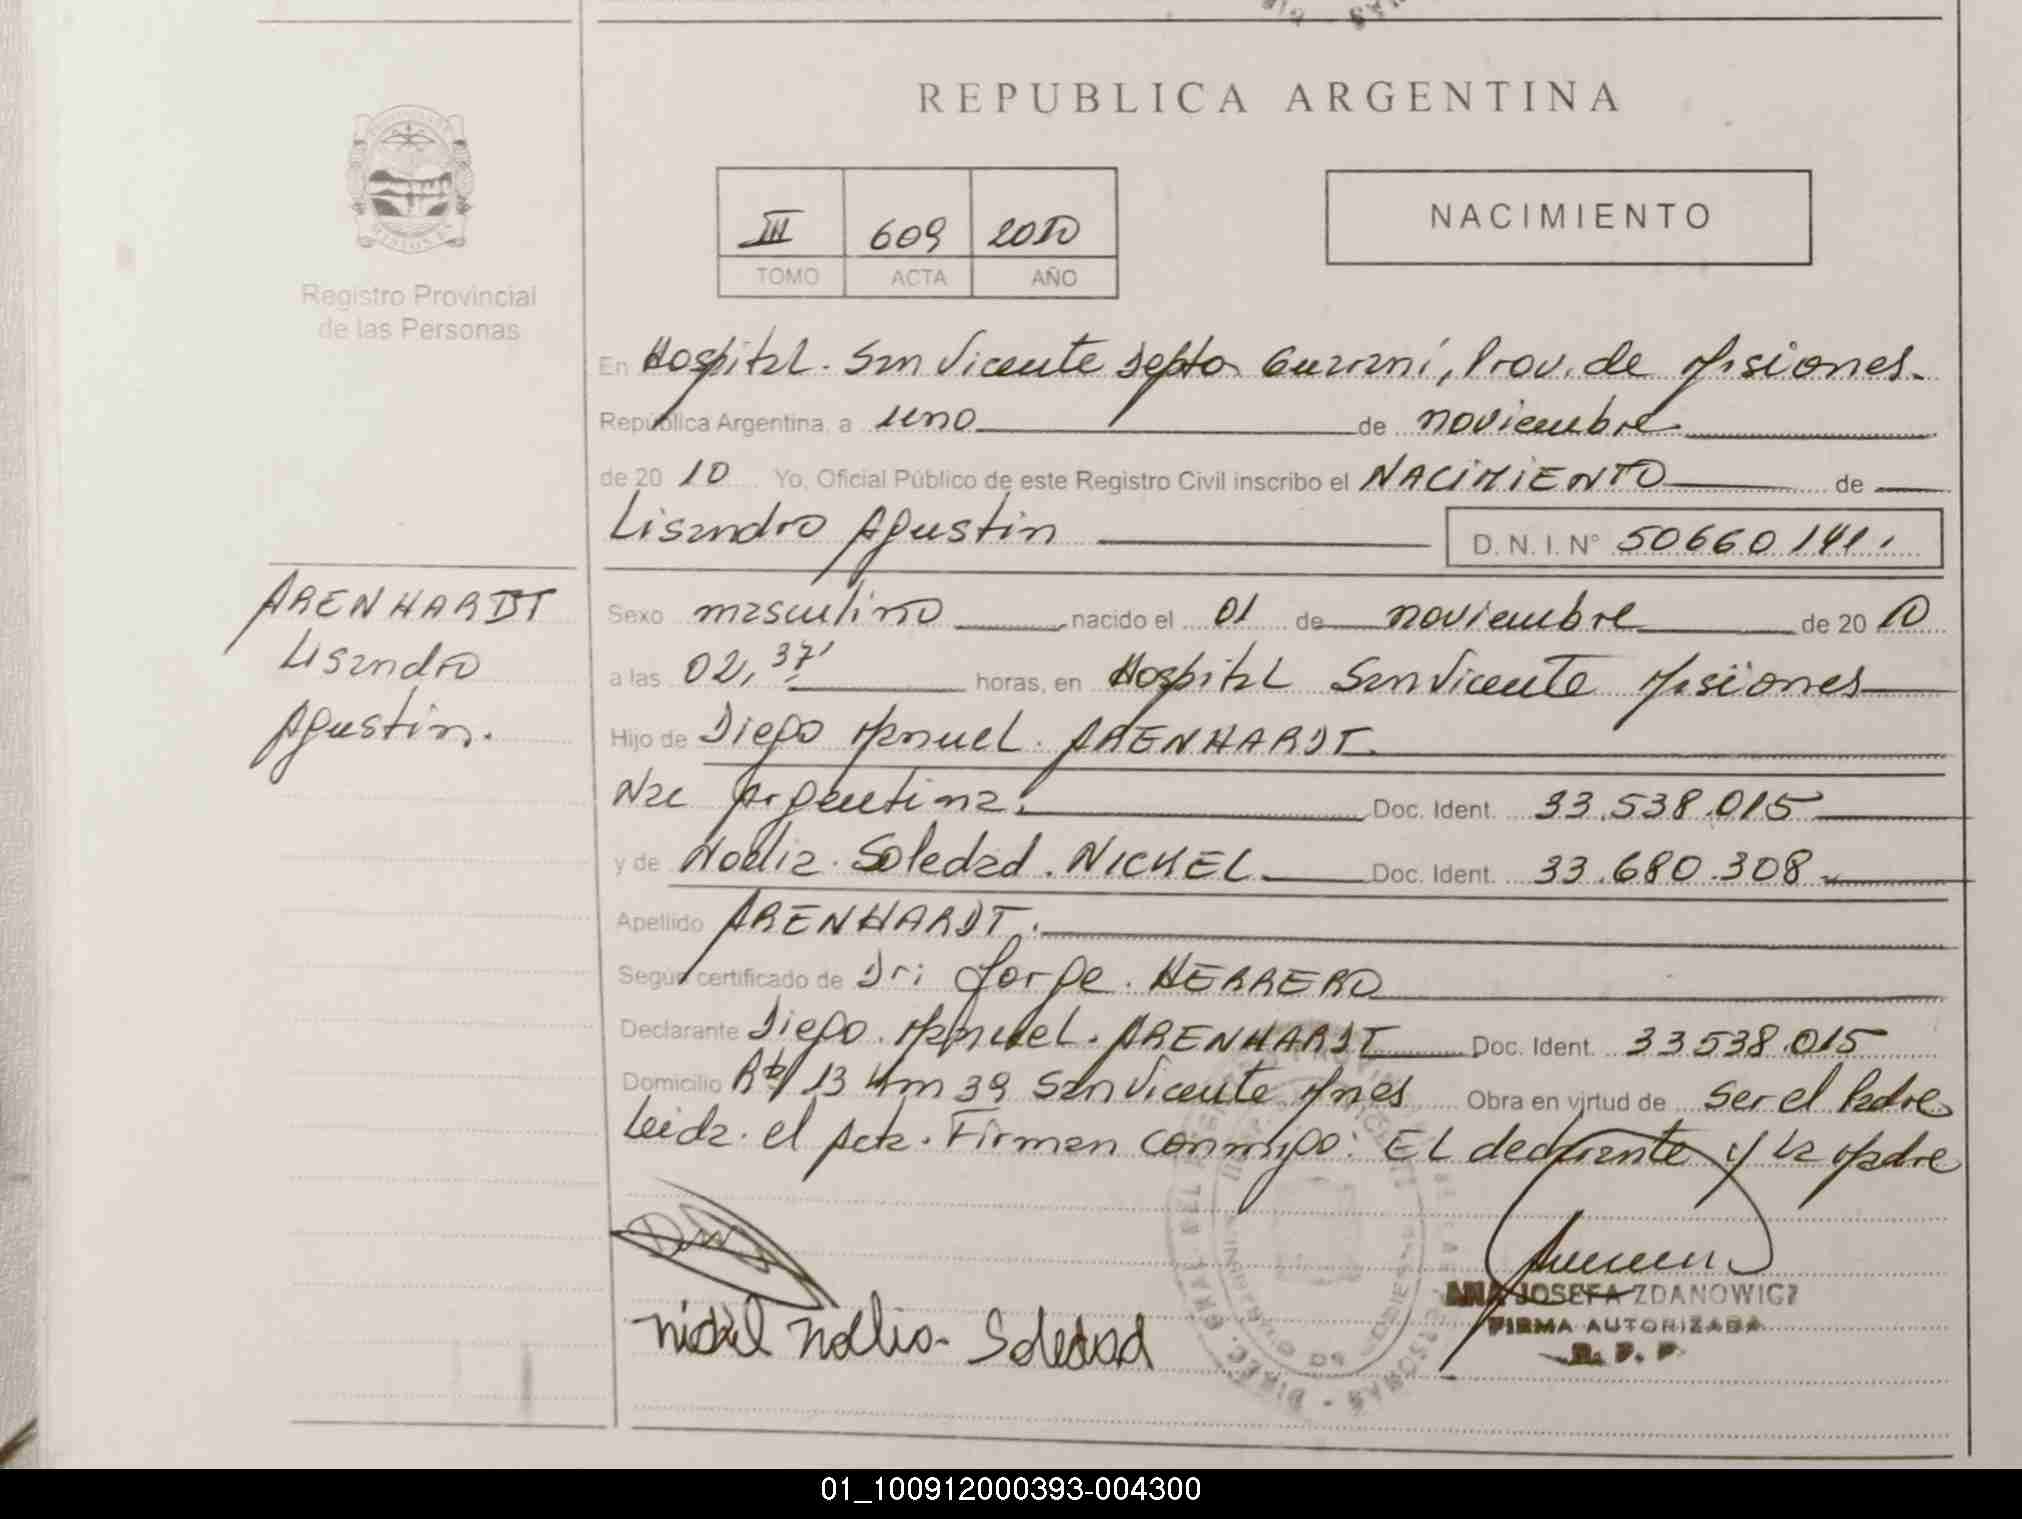 REPUBLICA ARGENTINA
III 609 2010
TOMO ACTA AÑO
NACIMIENTO
Registro Provincial
de las Personas
ARENHARDT
Lisandro
Agustin.
En Hospital. San Vicente Depto Guarani, Prov. de Misiones.
República Argentina, a uno de noviembre
de 20 10 Yo, Oficial Público de este Registro Civil inscribo el NACIMIENTO de
Lisandro Agustin D. N. I. N° 50660141.
Sexo masculino nacido el 01 de noviembre de 20 10
a las 02,37' horas, en Hospital San Vicente Misiones
Hijo de Diego Manuel. ARENHARDT.
Nac Argentina. Doc. Ident. 33.538.015
y de Noelia. Soledad. NICKEL Doc. Ident. 33.680.308
Apellido ARENHARDT.
Según certificado de Dr: Jorge. HERRERO
Declarante Diego. Manuel. ARENHARDT Doc. Ident. 33538.015
Domicilio 13 Km 39 San Vicente Mnes Obra en virtud de ser el Padre
Leida. el Acta. Firman conmigo: EL declarante y la Madre
Nickel Noelia Soledad
ANA JOSEFA ZDANOWICZ
FIRMA AUTORIZADA
R. P. P.
01_100912000393-004300